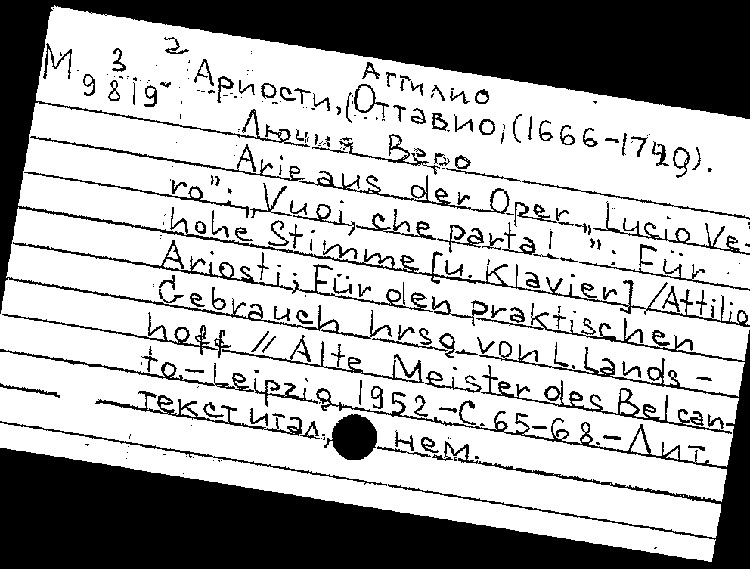 М 3 2
9819
Аттилио
Ариости, (Оттавио, (1666-1729).
Лючия Веро
Arie aus der Oper „Lucio Ve-
ro": „Vuoi, che parta!..": Für
hohe Stimme [u. Klavier] /Attilio
Ariosti; Für den praktischen
Gebrauch hrsg. von L. Lands-
hoff // Alte Meister des Belcan-
to.-Leipzig, 1952.-С.65-68.-Лит.
текст итал., нем.